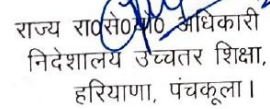 राज्य रा0से0यो0 अधिकारी
निदेशालय उच्चतर शिक्षा,
हरियाणा, पंचकूला।